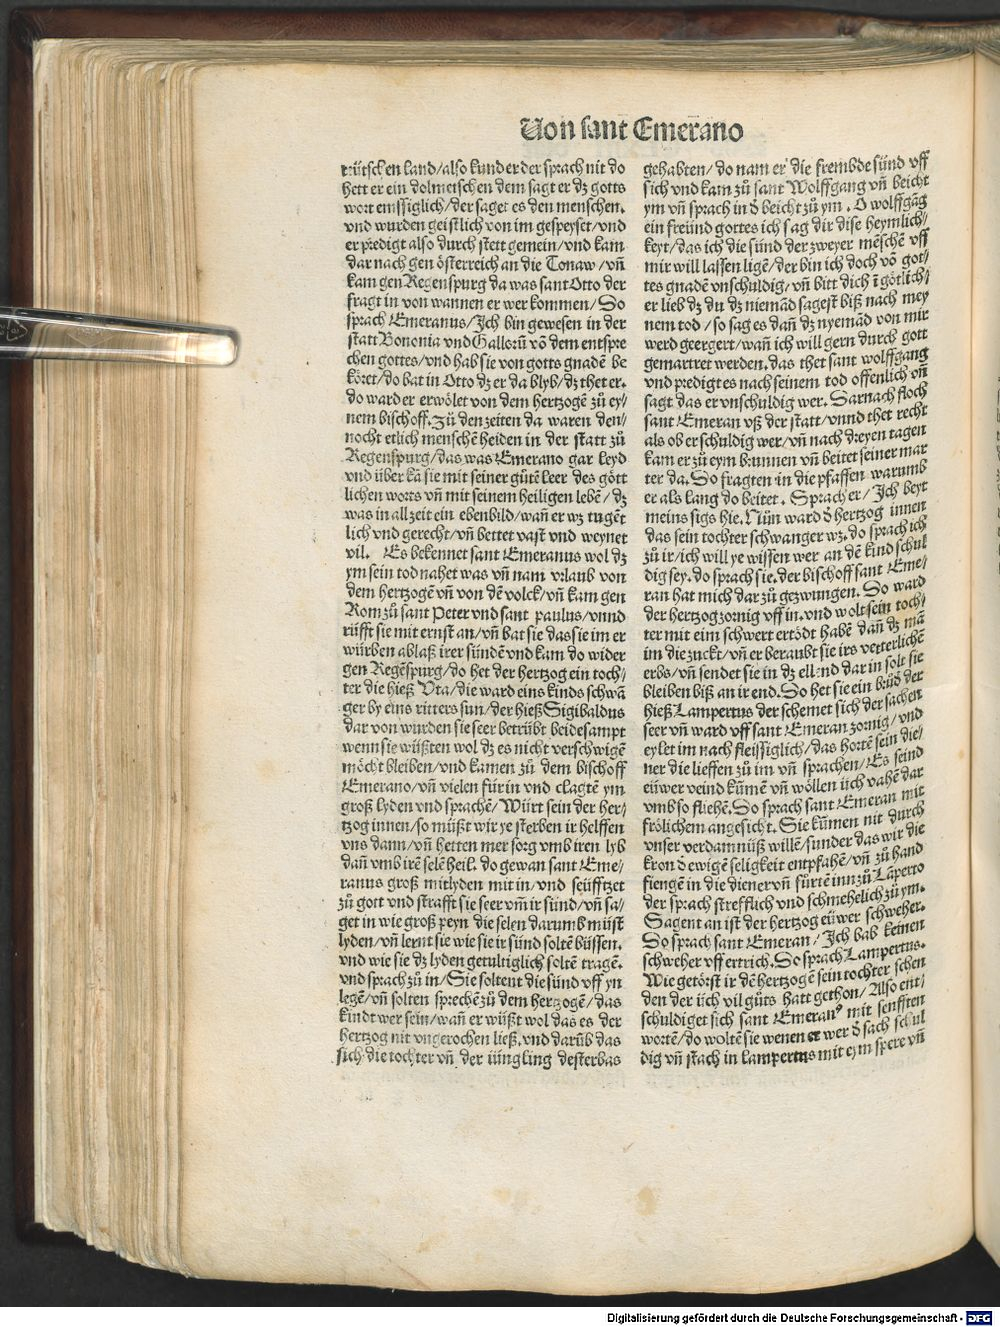 Von sant Emerano
tütschen land/also kund er der sprach nit do
hett er ein dolmetschen dem sagt er dz gotts
wort emssiglich/der saget es den menschen.
vnd wurden geistlich von im gespeyset/vnd
er predigt also durch stett gemein/vnd kam
dar nach gen österreich an die Tonaw/vñ
kam gen Regenspurg da was sant Otto der
fragt in von wannen er wer kommen/So
sprach Emeranus/Ich bin gewesen in der
statt Bononia vnd Gallorū võ dem entspre
chen gottes/vnd hab sie von gotts gnadē be
köret/do bat in Otto dz er da blyb/dz thet er.
do ward er erwölet von dem hertzogē zů ey/
nem bischoff. Zů den zeiten da waren den/
nocht etlich menschē heiden in der statt zů
Regenspurg/das was Emerano gar leyd
vnd über kā sie mit seiner gůtē leer des gött
lichen worts vñ mit seinem heiligen lebē/dz
was in all zeit ein ebenbild/wañ er wz tugēt
lich vnd gerecht/vñ bettet vast vnd weynet
vil. Es bekennet sant Emeranus wol dz
ym sein tod nahet was vñ nam vrlaub von
dem hertzogē vñ von dē volck/vñ kam gen
Rom zů sant Peter vnd sant paulus/vnnd
růfft sie mit ernst an/vñ bat sie das sie im er
würben ablaß irer sündē vnd kam do wider
gen Regēspurg/do het der hertzog ein toch/
ter die hieß Vta/die ward eins kinds schwā
ger by eins ritters sun/der hieß Sigibaldus
dar von wurden sie seer betrübt beidesampt
wenn sie wüßten wol dz es nicht verschwigē
möcht bleiben/vnd kamen zů dem bischoff
Emerano/vñ vielen für in vnd clagtē ym
groß lyden vnd sprachē/Würt sein der her/
tzog innen/so müßt wir ye sterben ir helffen
vns dann/vñ hetten mer sorg vmb iren lyb
dañ vmb irē selē heil. do gewan sant Eme/
ranus groß mitlyden mit in/vnd seüfftzet
zů gott vnd strafft sie seer vm̄ ir sünd/vñ sa/
get in wie groß peyn die selen darumb müst
lyden/vñ lernt sie wie sie ir sünd soltē büssen.
vnd wie sie dz lyden getultiglich soltē tragē.
vnd sprach zů in/Sie soltent die sünd vff yn
legē/vñ solten sprechē zů dem hertzogē/das
kindt wer sein/wañ er wüßt wol das es der
hertzog nit vngerochen ließ. vnd darūb das
sich die tochter vñ der iüngling desterbas
gehabten/do nam er die frembde sünd vff
sich vnd kam zů sant Wolffgang vñ beicht
ym vñ sprach in d̄ beicht zů ym. O wolffgāg
ein freünd gottes ich sag dir dise heymlich/
keyt/das ich die sünd der zweyer mēschē vff
mir will lassen ligē/der bin ich doch võ got/
tes gnadē vnschuldig/vñ bitt dich ī götlich/
er lieb dz du dz niemād sagest biß nach mey
nem tod/so sag es dañ dz nyemād von mir
werd geergert/wañ ich will gern durch gott
gemartret werden. das thet sant wolffgang
vnd predigt es nach seinem tod offenlich vñ
sagt das er vnschuldig wer. Darnach floch
sant Emeran vß der statt/vnnd thet recht
als ob er schuldig wer/vñ nach dreyen tagen
kam er zů eym brunnen vñ beitet seiner mar
ter da. Do fragten in die pfaffen warumb
er als lang do beitet. Sprach er/Ich beyt
meins sigs hie. Nůn ward d̄ hertzog innen
das sein tochter schwanger wz. do sprach ich
zů ir/ich will ye wissen wer an dē kind schul
dig sey. do sprach sie. der bischoff sant Eme/
ran hat mich dar zů gezwungen. Do ward
der hertzog zornig vff in. vnd wolt sein toch/
ter mit eim schwert ertödt habē dañ dz mā
im die zuckt/vñ er beraubt sie irs vetterlichē
erbs/vñ sendet sie in dz ellend dar in solt sie
bleiben biß an ir end. Do het sie ein brůd̄ der
hieß Lampertus der schemet sich der sachen
seer vñ ward vff sant Emeran zornig/vnd
eylet im nach fleissiglich/das hortē sein die/
ner die lieffen zů im vñ sprachen/Es seind
eüwer veind kūmē vñ wöllen üch vahē dar
vmb so fliehē. Do sprach sant Emeran mit
frölichem angesicht. Sie kūmen nit durch
vnser verdamnüß willē/sunder das wir die
kron d̄ ewigē seligkeit entpfahē/vñ zů hand
fiengē in die diener vñ fürtē inn zů Lāperto
der sprach strefflich vnd schmehelich zů ym.
Sagent an ist der hertzog eüwer schweher.
Do sprach sant Emeran/Ich hab keinen
schweher vff ertrich. Do sprach Lampertus.
Wie getörst ir dē hertzogē sein tochter schen
den der üch vil gůts hatt gethon/Also ent/
schuldiget sich sant Emeranꝰ mit senfften
wortē/do woltē sie wenen er wer d̄ sach schul
dig vñ stach in Lampertus mit eym spere vñ
Digitalisierung gefördert durch die Deutsche Forschungsgemeinschaft - DFG